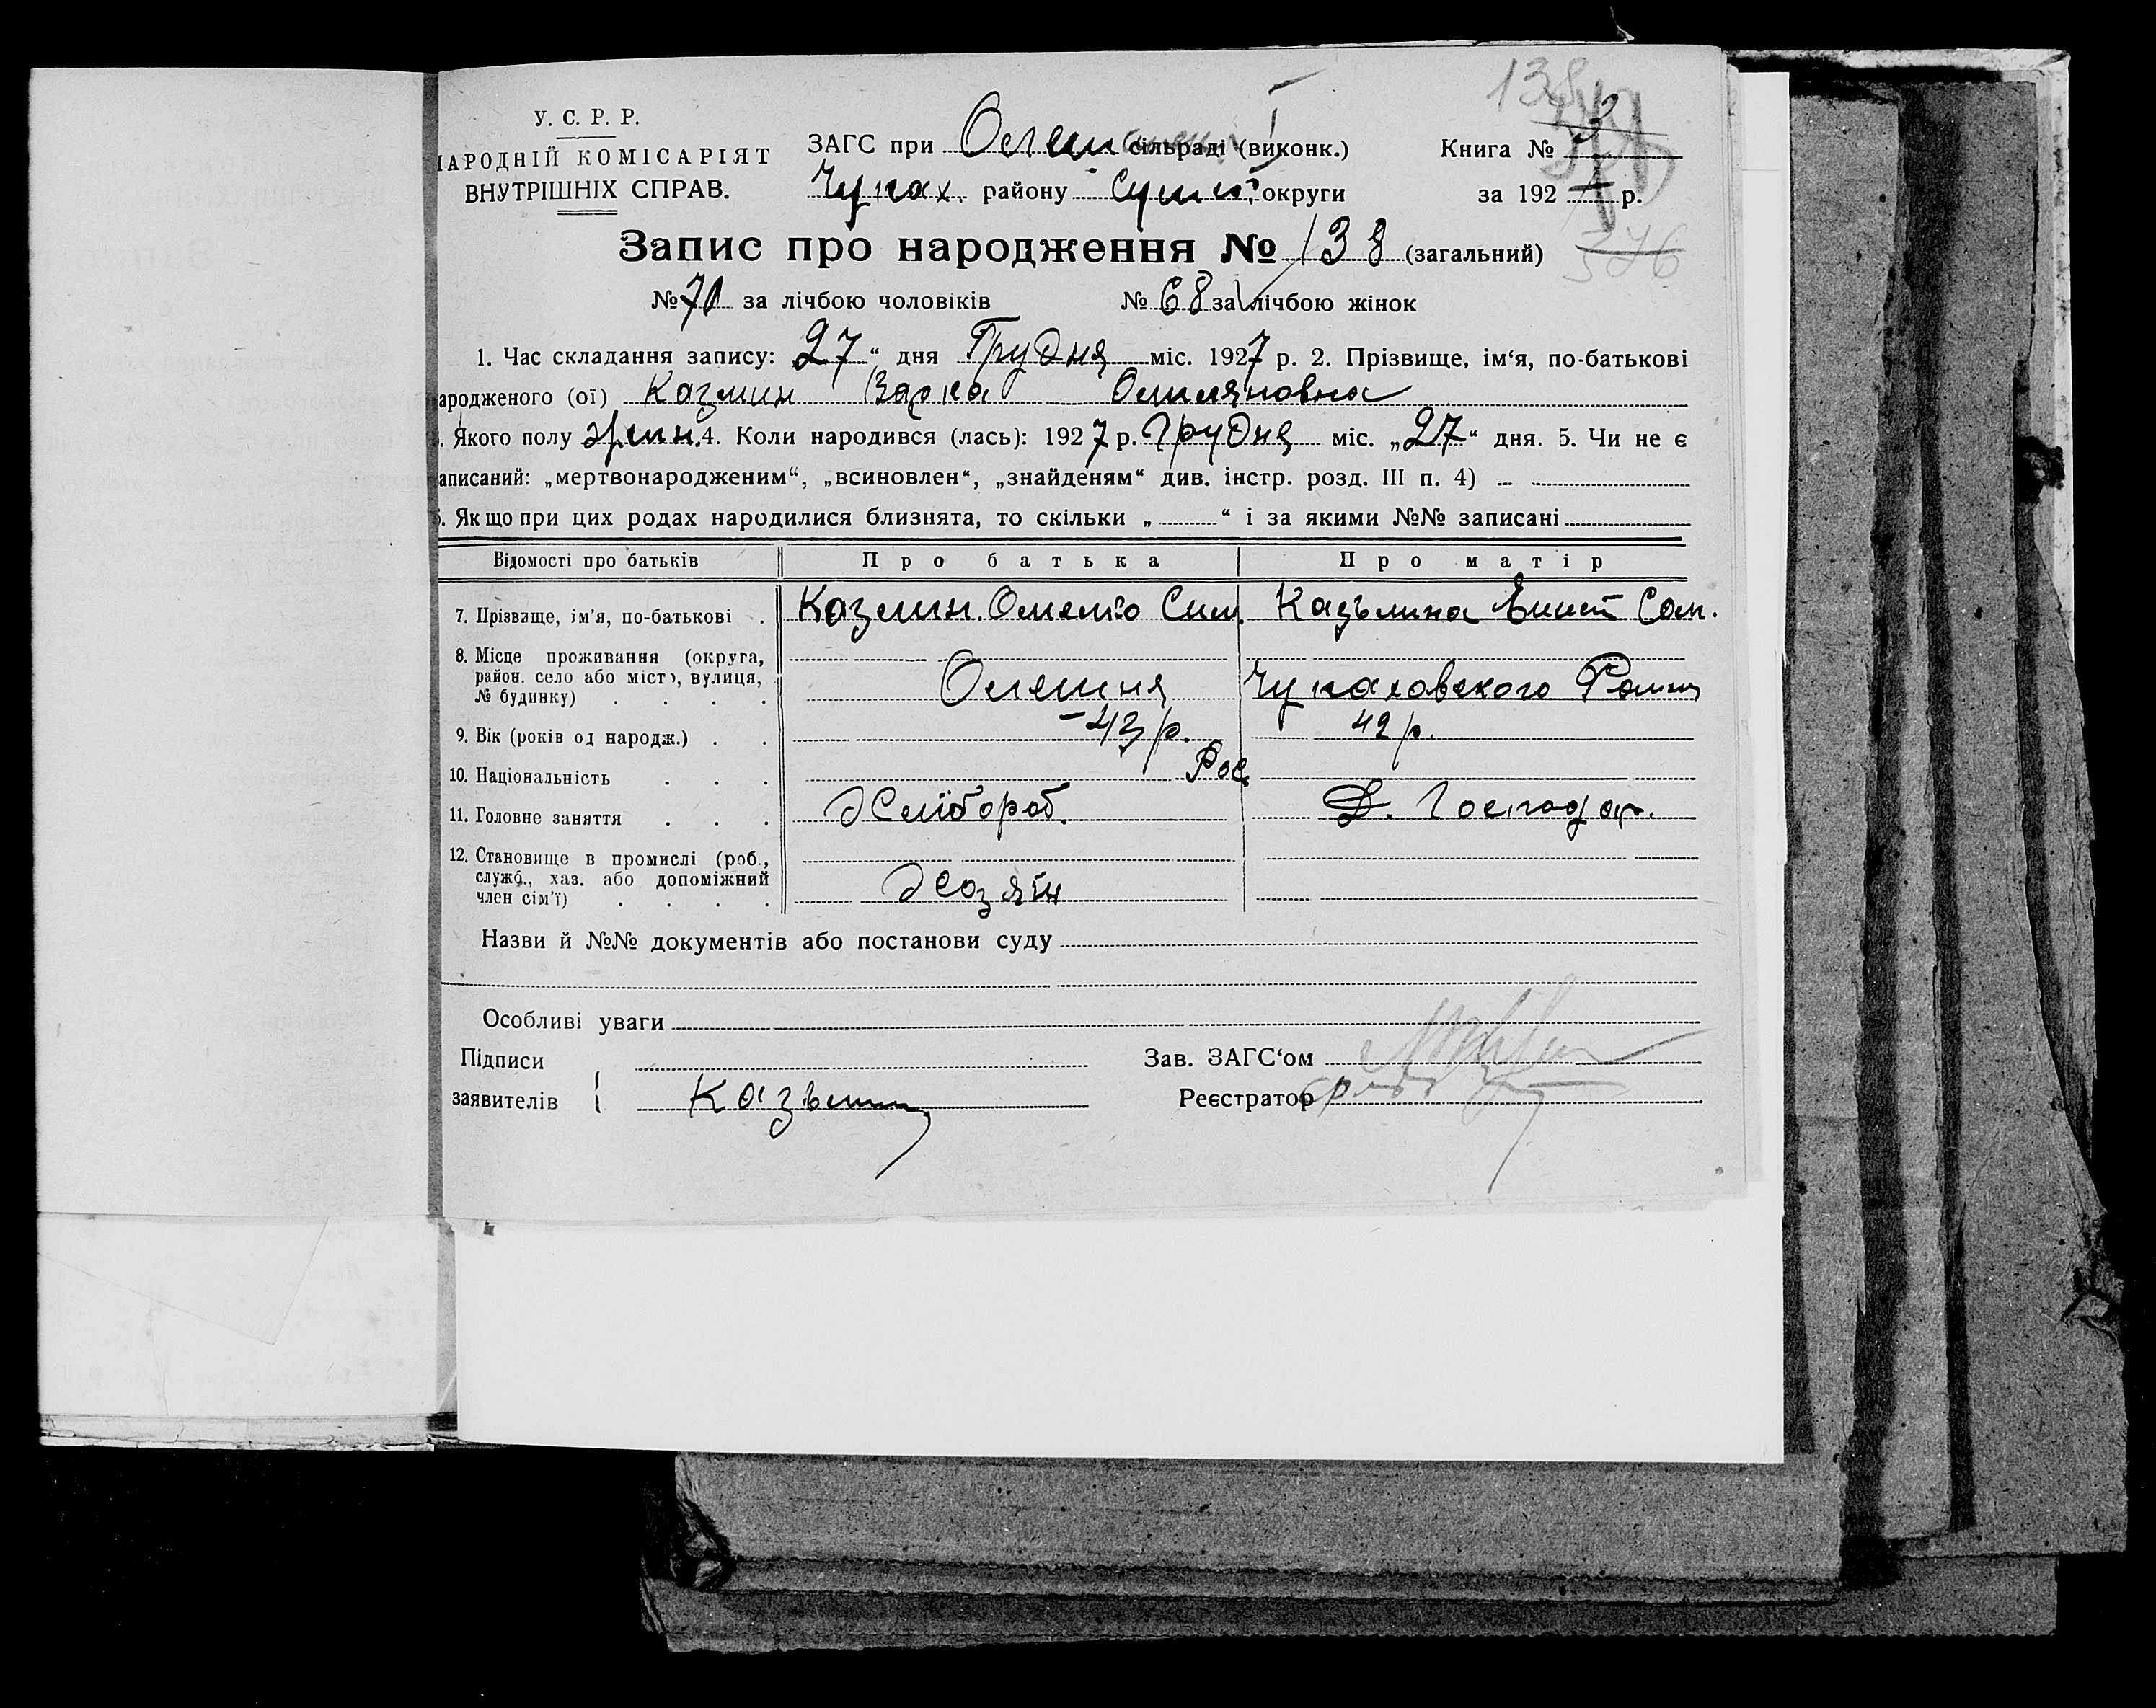 У. С. Р. Р.
НАРОДНІЙ КОМІСАРІЯТ
ВНУТРІШНІХ СПРАВ.
138
ЗАГС при Олеш сільраді (виконк.)
Книга №
Чупах. району Сумськ. округи
за 192 7 р.
Запис про народження № 138 (загальний)
376
№ 70 за лічбою чоловіків № 68 за лічбою жінок
1. Час складання запису: 27 “ дня Грудня міс. 1927 р. 2. Прізвище, ім‘я, по-батькові
ародженого (ої) Казмин Варка Омиляновна
. Якого полу жин. 4. Коли народився (лась): 1927 р. Грудня міс. „27“ дня. 5. Чи не є
аписаний: „мертвонародженим“, „всиновлен“, „знайденям“ див. інстр. розд. III п. 4) –
6. Якщо при цих родах народилися близнята, то скільки „ “ і за якими №№ записані
Відомості про батьків Про батька Про матір
7. Прізвище, ім'я, по-батькові . Казмин. Омелько Сим. Казьмина Сам.
8. Місце проживання (округа,
район. село або місто, вулиця,
№ будинку) . . . . Олешня Чупаховского Району
9. Вік (років од народж.) . . –43 р. 42 р.
10. Національність . . . Рос
11. Головне заняття . . . Хлібороб. Д. Господар.
12. Становище в промислі (роб.,
служб., хаз. або допоміжний
член сім'ї) . . . . Хозяїн
Назви й №№ документів або постанови суду
Особливі уваги
Підписи
Зав. ЗАГС‘ом
заявителів Казьмин
Реєстратор